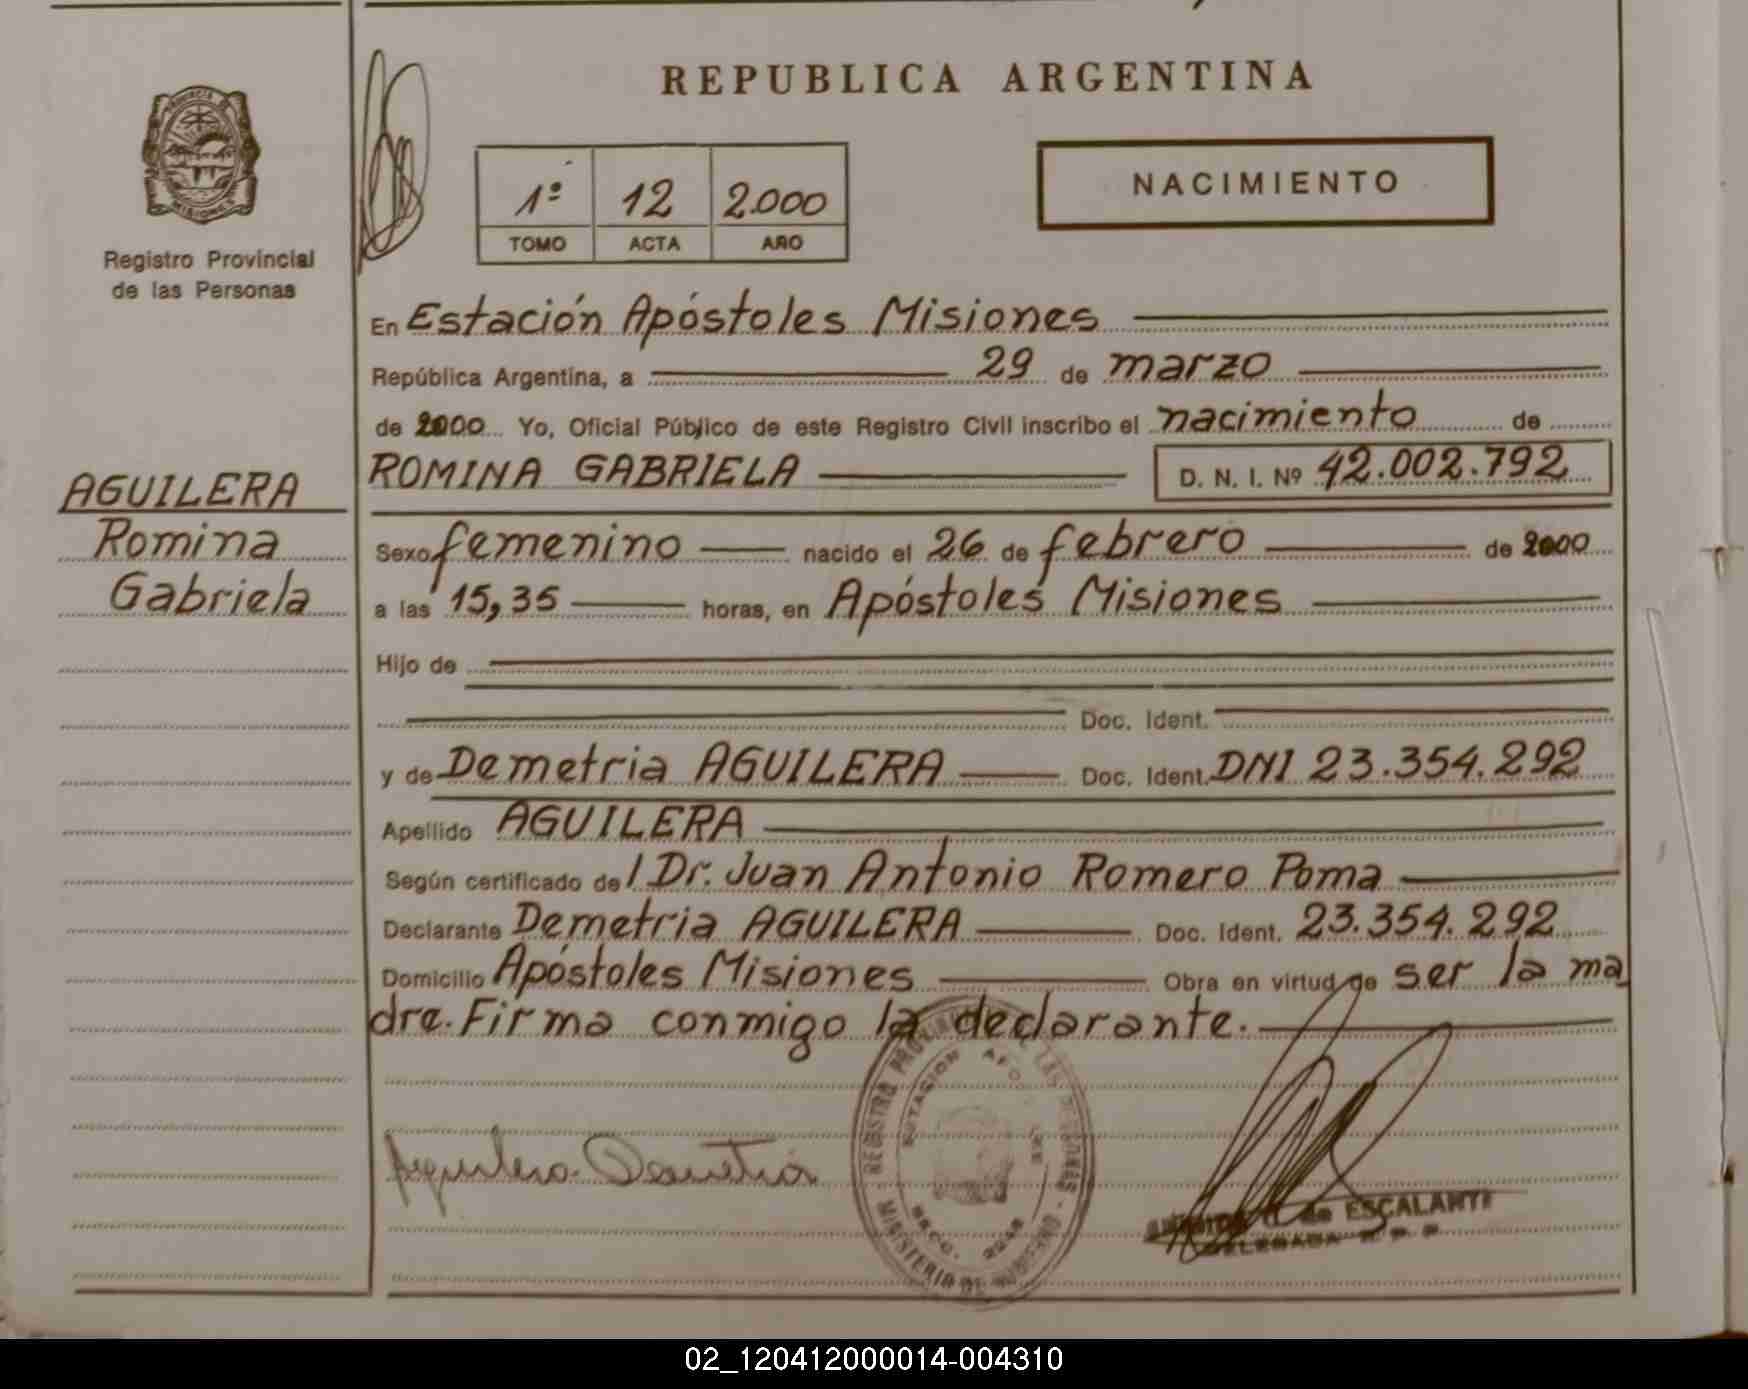 REPUBLICA ARGENTINA
PROVINCIA DE MISIONES
Registro Provincial
de las Personas
1º 12 2.000
TOMO ACTA AÑO
NACIMIENTO
En Estación Apóstoles Misiones
República Argentina, a 29 de marzo
de 2000 Yo, Oficial Público de este Registro Civil inscribo el nacimiento de
ROMINA GABRIELA D. N. I. Nº 42.002.792
AGUILERA
Romina
Gabriela
Sexo femenino nacido el 26 de febrero de 2000
a las 15,35 horas, en Apóstoles Misiones
Hijo de
Doc. Ident.
y de Demetria AGUILERA Doc. Ident. DNI 23.354.292
Apellido AGUILERA
Según certificado de/ Dr. Juan Antonio Romero Poma
Declarante Demetria AGUILERA Doc. Ident. 23.354.292
Domicilio Apóstoles Misiones Obra en virtud de ser la ma
dre. Firma conmigo la declarante.
Aguilera Demetria
REGISTRO PROVINCIAL DE LAS PERSONAS
MINISTERIO DE GOBIERNO
de ESCALANTE
DELEGADA R P P
02_120412000014-004310